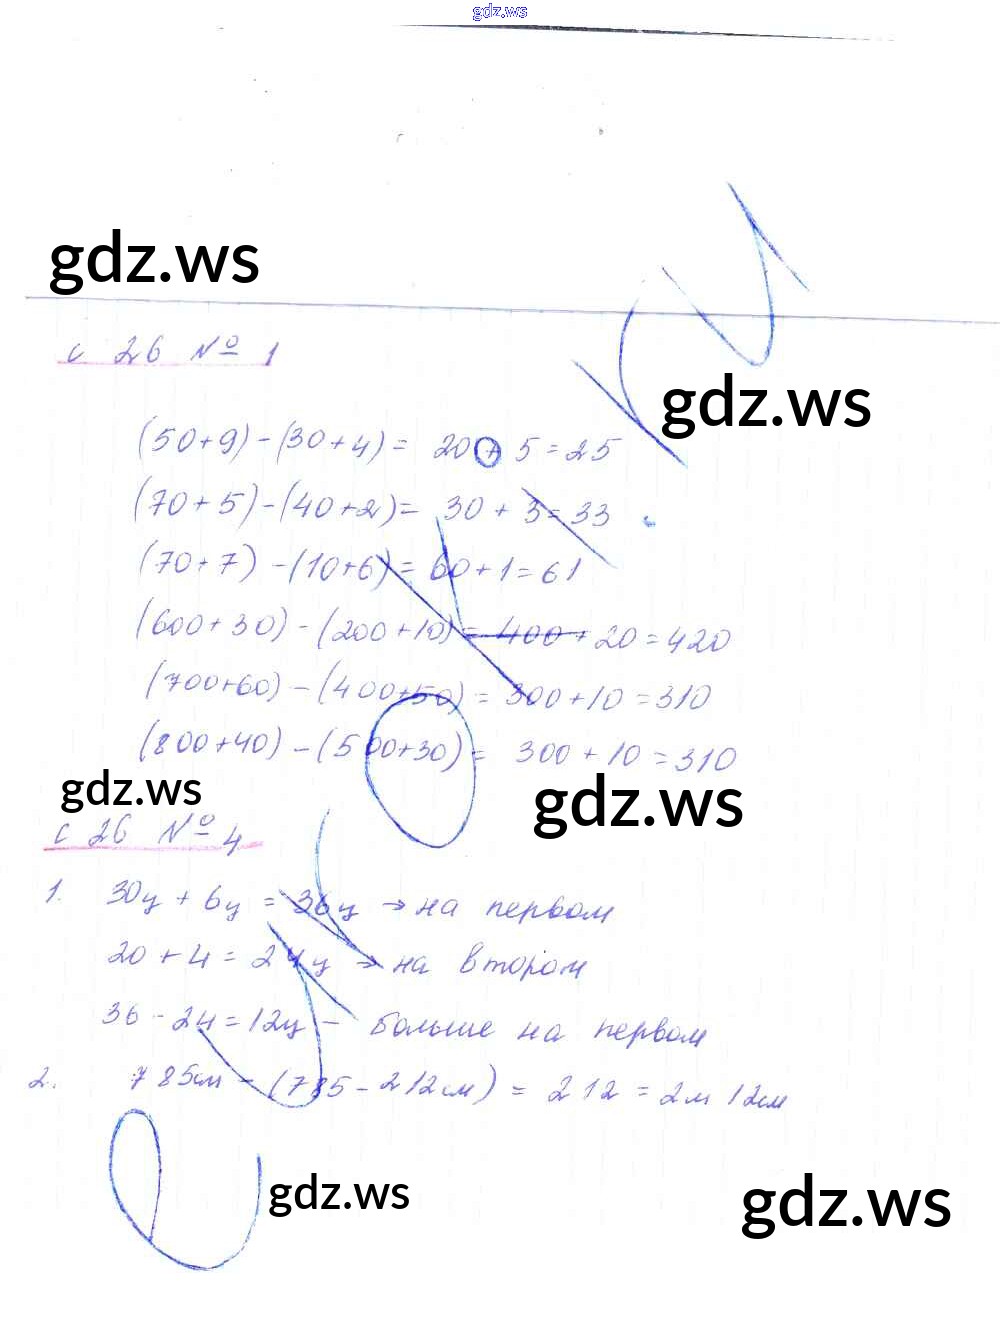 gdz.ws
gdz.ws
с 26 № 1
gdz.ws
(50+9)-(30+4)= 20+5=25
(70+5)-(40+2)= 30+3=33
(70+7)-(10+6)=60+1=61
(600+30)-(200+10)=400+20=420
(700+60)-(400+50)=300+10=310
(800+40)-(500+30)= 300+10=310
gdz.ws
gdz.ws
с 26 № 4
1. 30ц+6ц=36ц → на первом
20+4=24ц → на втором
36-24=12ц - больше на первом
2. 785см-(785-212см)=212=2м 12см
gdz.ws
gdz.ws